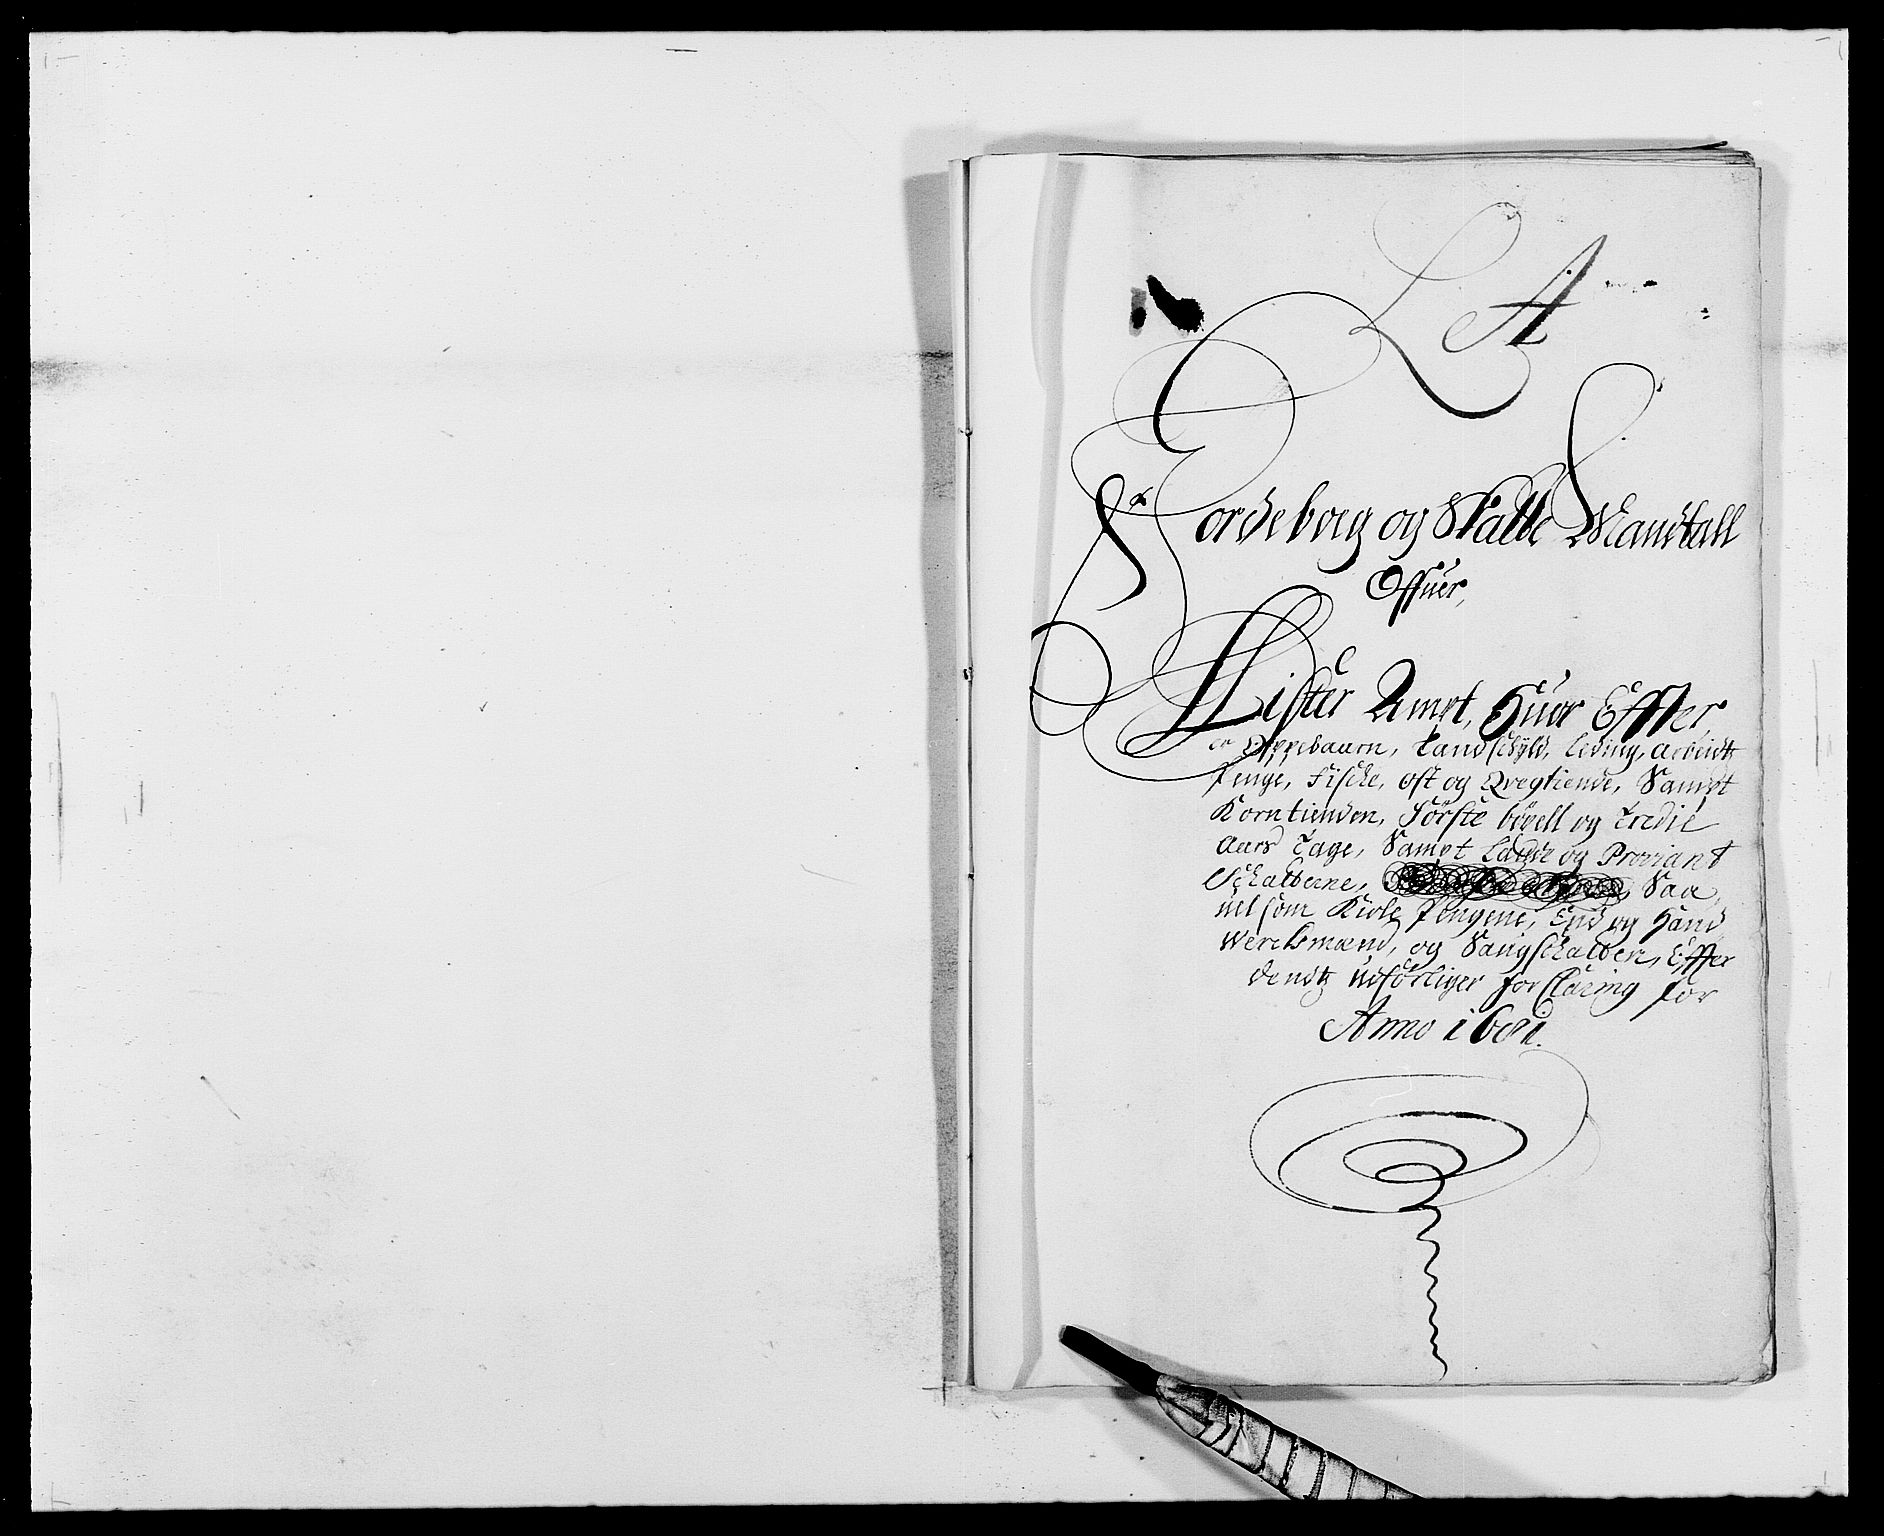 L A
Jordebog og Skatte Mandtall
Offuer,
Lister Ampt, Huor Effter
er Oppebaarn, Landschÿld, Leding, Arbeidtz
Penge, Fische, ost og Qvegtiende, Sampt
Korntienden, Förste böxell og Tredie
Aars Tage, Sampt Laue og Proviant
Schatterne, Saa
uel som Kiole Pengene, End og Hand
Wercksmænd, og Saugschatten, Effter
dendtz udförliger forklaring for
Anno 1681.